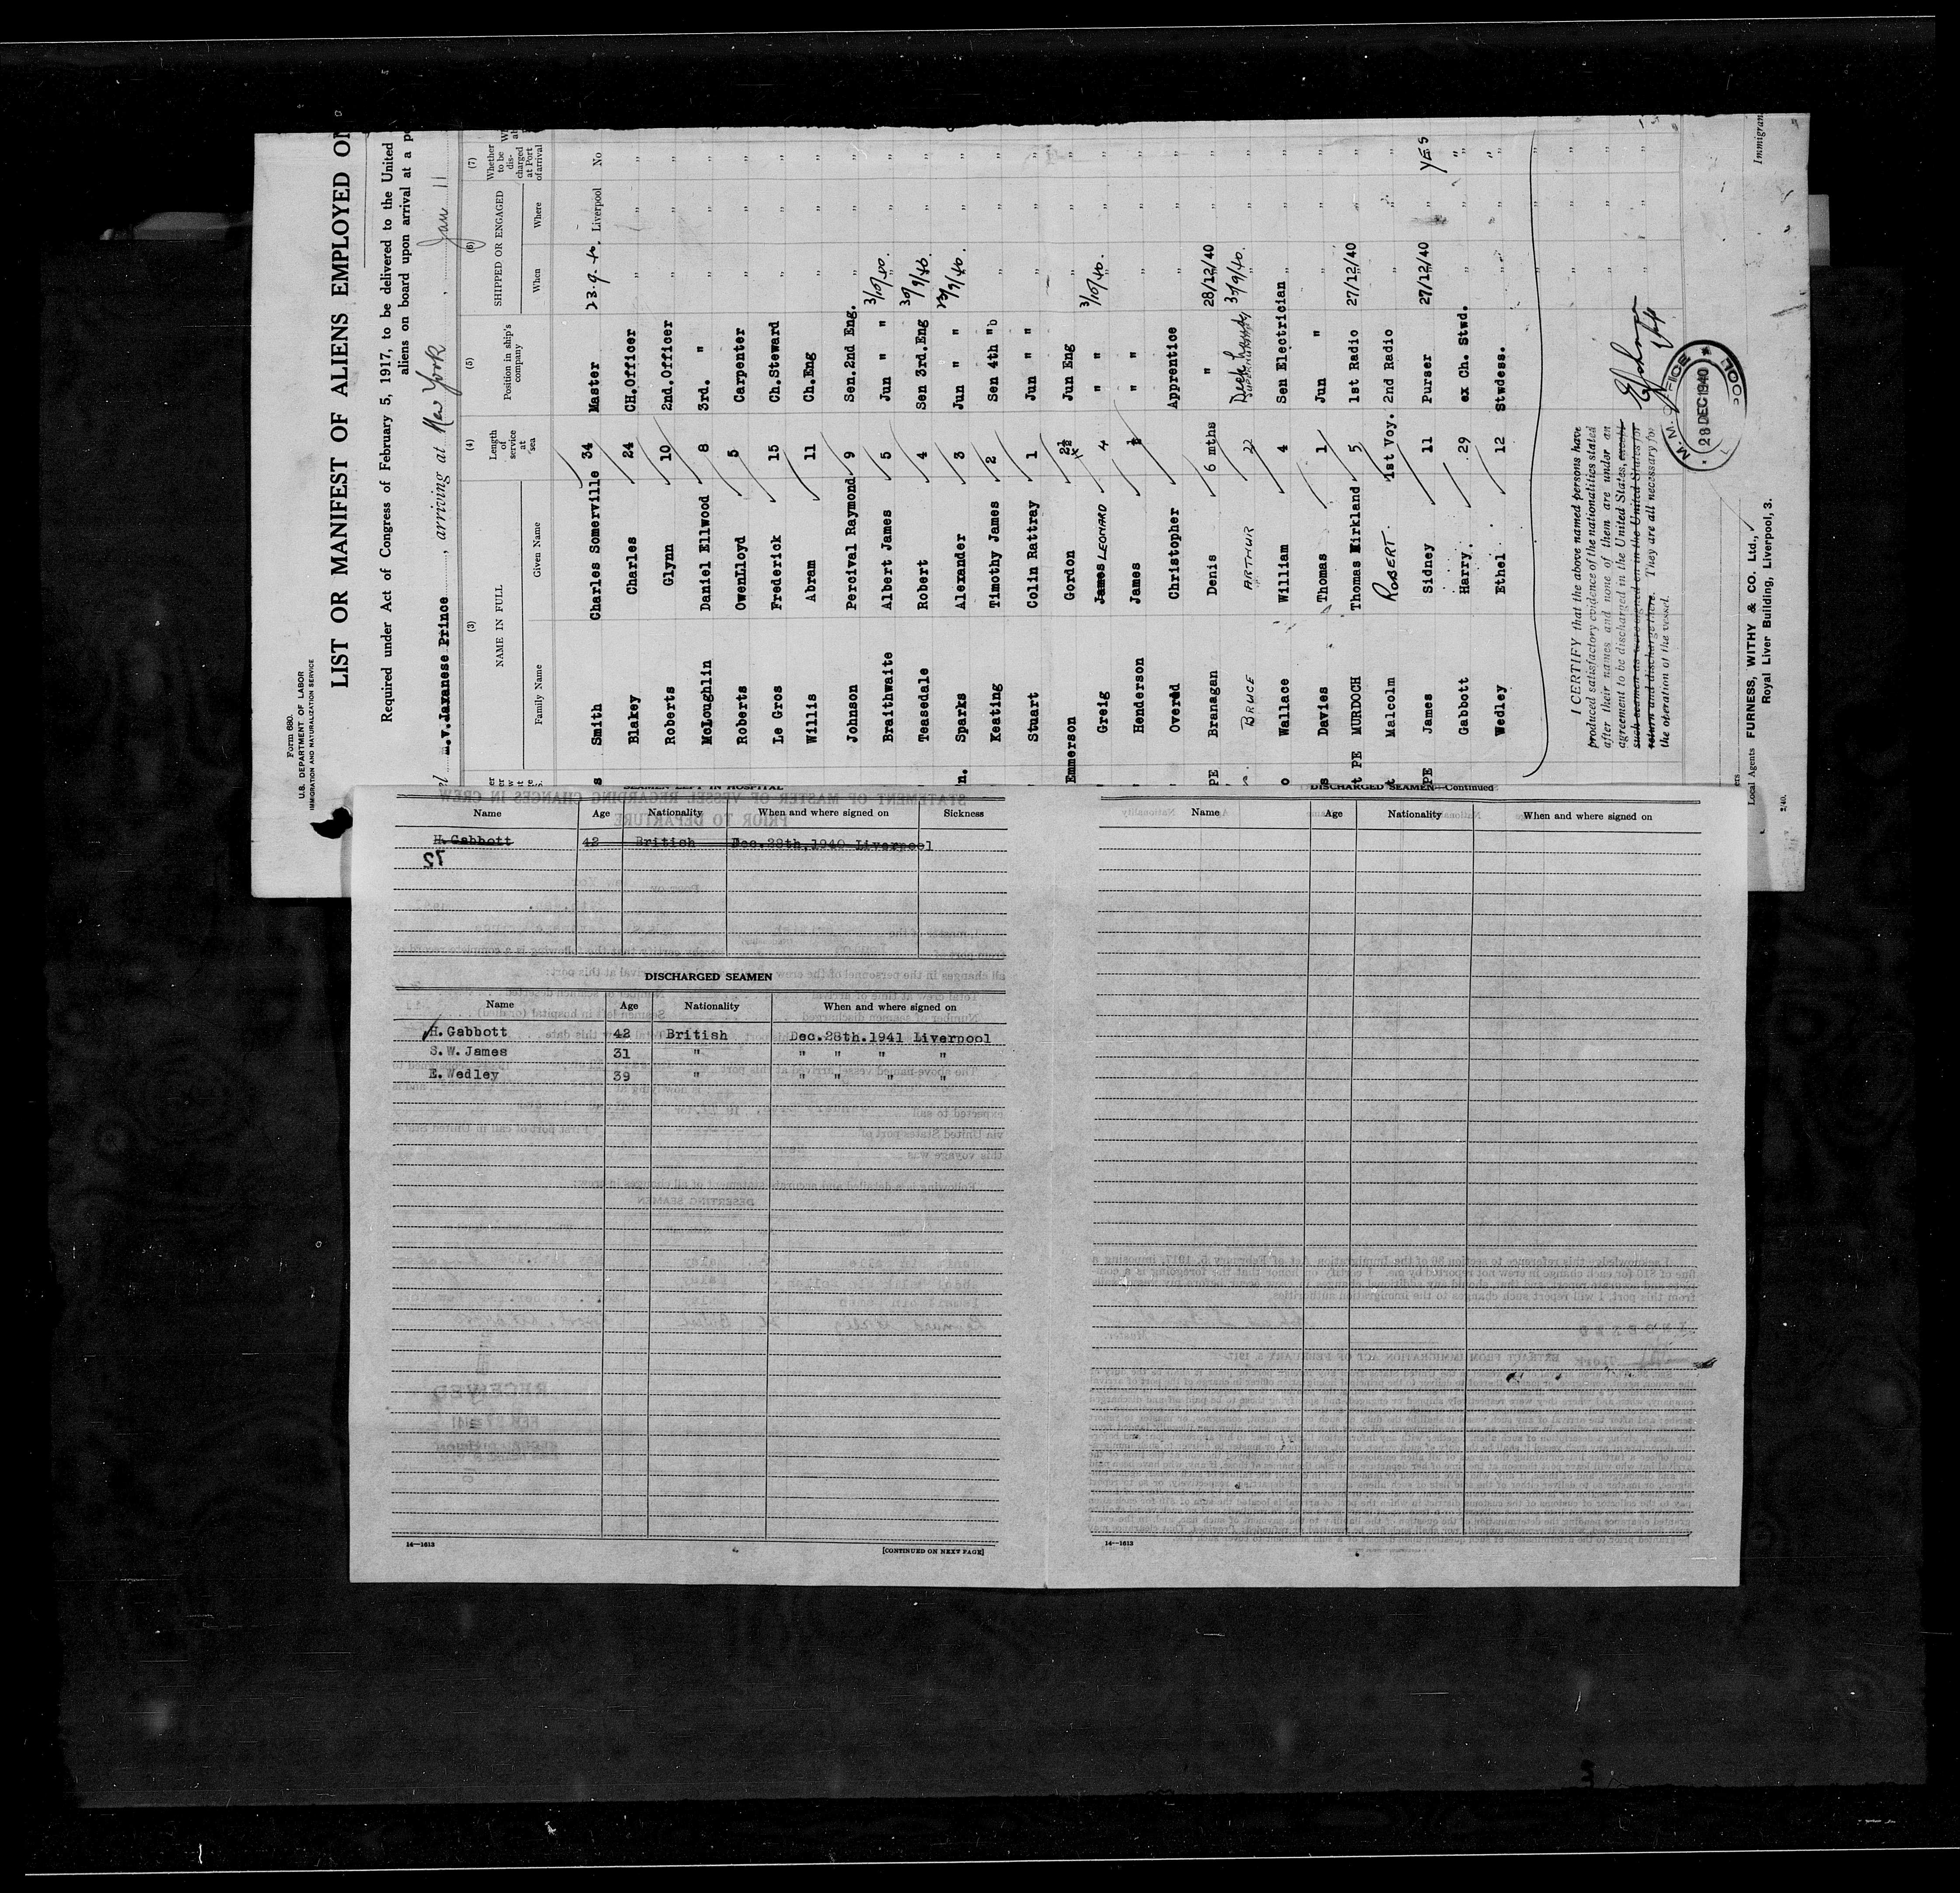 Form 680.
U.S. DEPARTMENT OF LABOR
IMMIGRATION AND NATURALIZATION SERVICE
LIST OR MANIFEST OF ALIENS EMPLOYED ON
Required under Act of Congress of February 5, 1917, to be delivered to the United
aliens on board upon arrival at a
m.v. Javanese Prince, arriving at New York, Jan 11
(3) (4) (5) (6) (7)
NAME IN FULL Length of service at sea Position in ship's company SHIPPED OR ENGAGED Whether to be discharged at Port of arrival
Family Name Given Name When Where
Smith Charles Somerville 34 Master 23.9.40. Liverpool No
Blakey Charles 24 CH.Officer " " "
Roberts Glynn 10 2nd.Officer " " "
McLoughlin Daniel Ellwood 8 3rd. " " " "
Roberts OwenLloyd 5 Carpenter " " "
Le Gros Frederick 15 Ch.Steward " " "
Willis Abram 11 Ch.Eng " " "
Johnson Percival Raymond 9 Sen.2nd Eng. " "
Braithwaite Albert James 5 Jun " " 3/10/40. " "
Teasedale Robert 4 Sen 3rd.Eng 30/9/40. " "
Sparks Alexander 3 Jun " " 23/9/40. " "
Keating Timothy James 2 Sen 4th " " " "
Stuart Colin Rattray 1 Jun " " " "
Emmerson Gordon 2½ Jun Eng " "
Greig James LEONARD 4 " " 3/10/40. " "
Henderson James ½ " " " "
Overed Christopher Apprentice " " "
PE Branagan Denis 6 mths " 28/12/40 " "
BRUCE ARTHUR 22 Deck hand 30/9/40. " "
Wallace William 4 Sen Electrician " "
Davies Thomas 1 Jun " " " "
PE MURDOCH Thomas Kirkland 5 1st Radio 27/12/40 " "
Malcolm ROBERT. 1st Voy. 2nd Radio " " "
PE James Sidney 11 Purser 27/12/40 " YES
Gabbott Harry. 29 ex Ch. Stwd. " " "
Wedley Ethel 12 Stwdess. " " "
I CERTIFY that the above named persons have
produced satisfactory evidence of the nationalities stated
after their names and none of them are under an
agreement to be discharged in the United States, except
such seamen as were signed on in the United States for
return and discharge there. They are all necessary for
the operation of the vessel.
M.M. OFFICE
28 DEC 1940
POOL
Local Agents FURNESS, WITHY & CO. Ltd.,
Royal Liver Building, Liverpool, 3.
2/40.
Immigran
SEAMEN LEFT IN HOSPITAL
Name Age Nationality When and where signed on Sickness
H. Gabbott 42 British Dec.28th,1940 Liverpool
DISCHARGED SEAMEN
Name Age Nationality When and where signed on
H. Gabbott 42 British Dec.28th.1941 Liverpool
S.W. James 31 " " " " "
E. Wedley 39 " " " " "
14—1613
[CONTINUED ON NEXT PAGE]
DISCHARGED SEAMEN—Continued
Name Age Nationality When and where signed on
14—1613